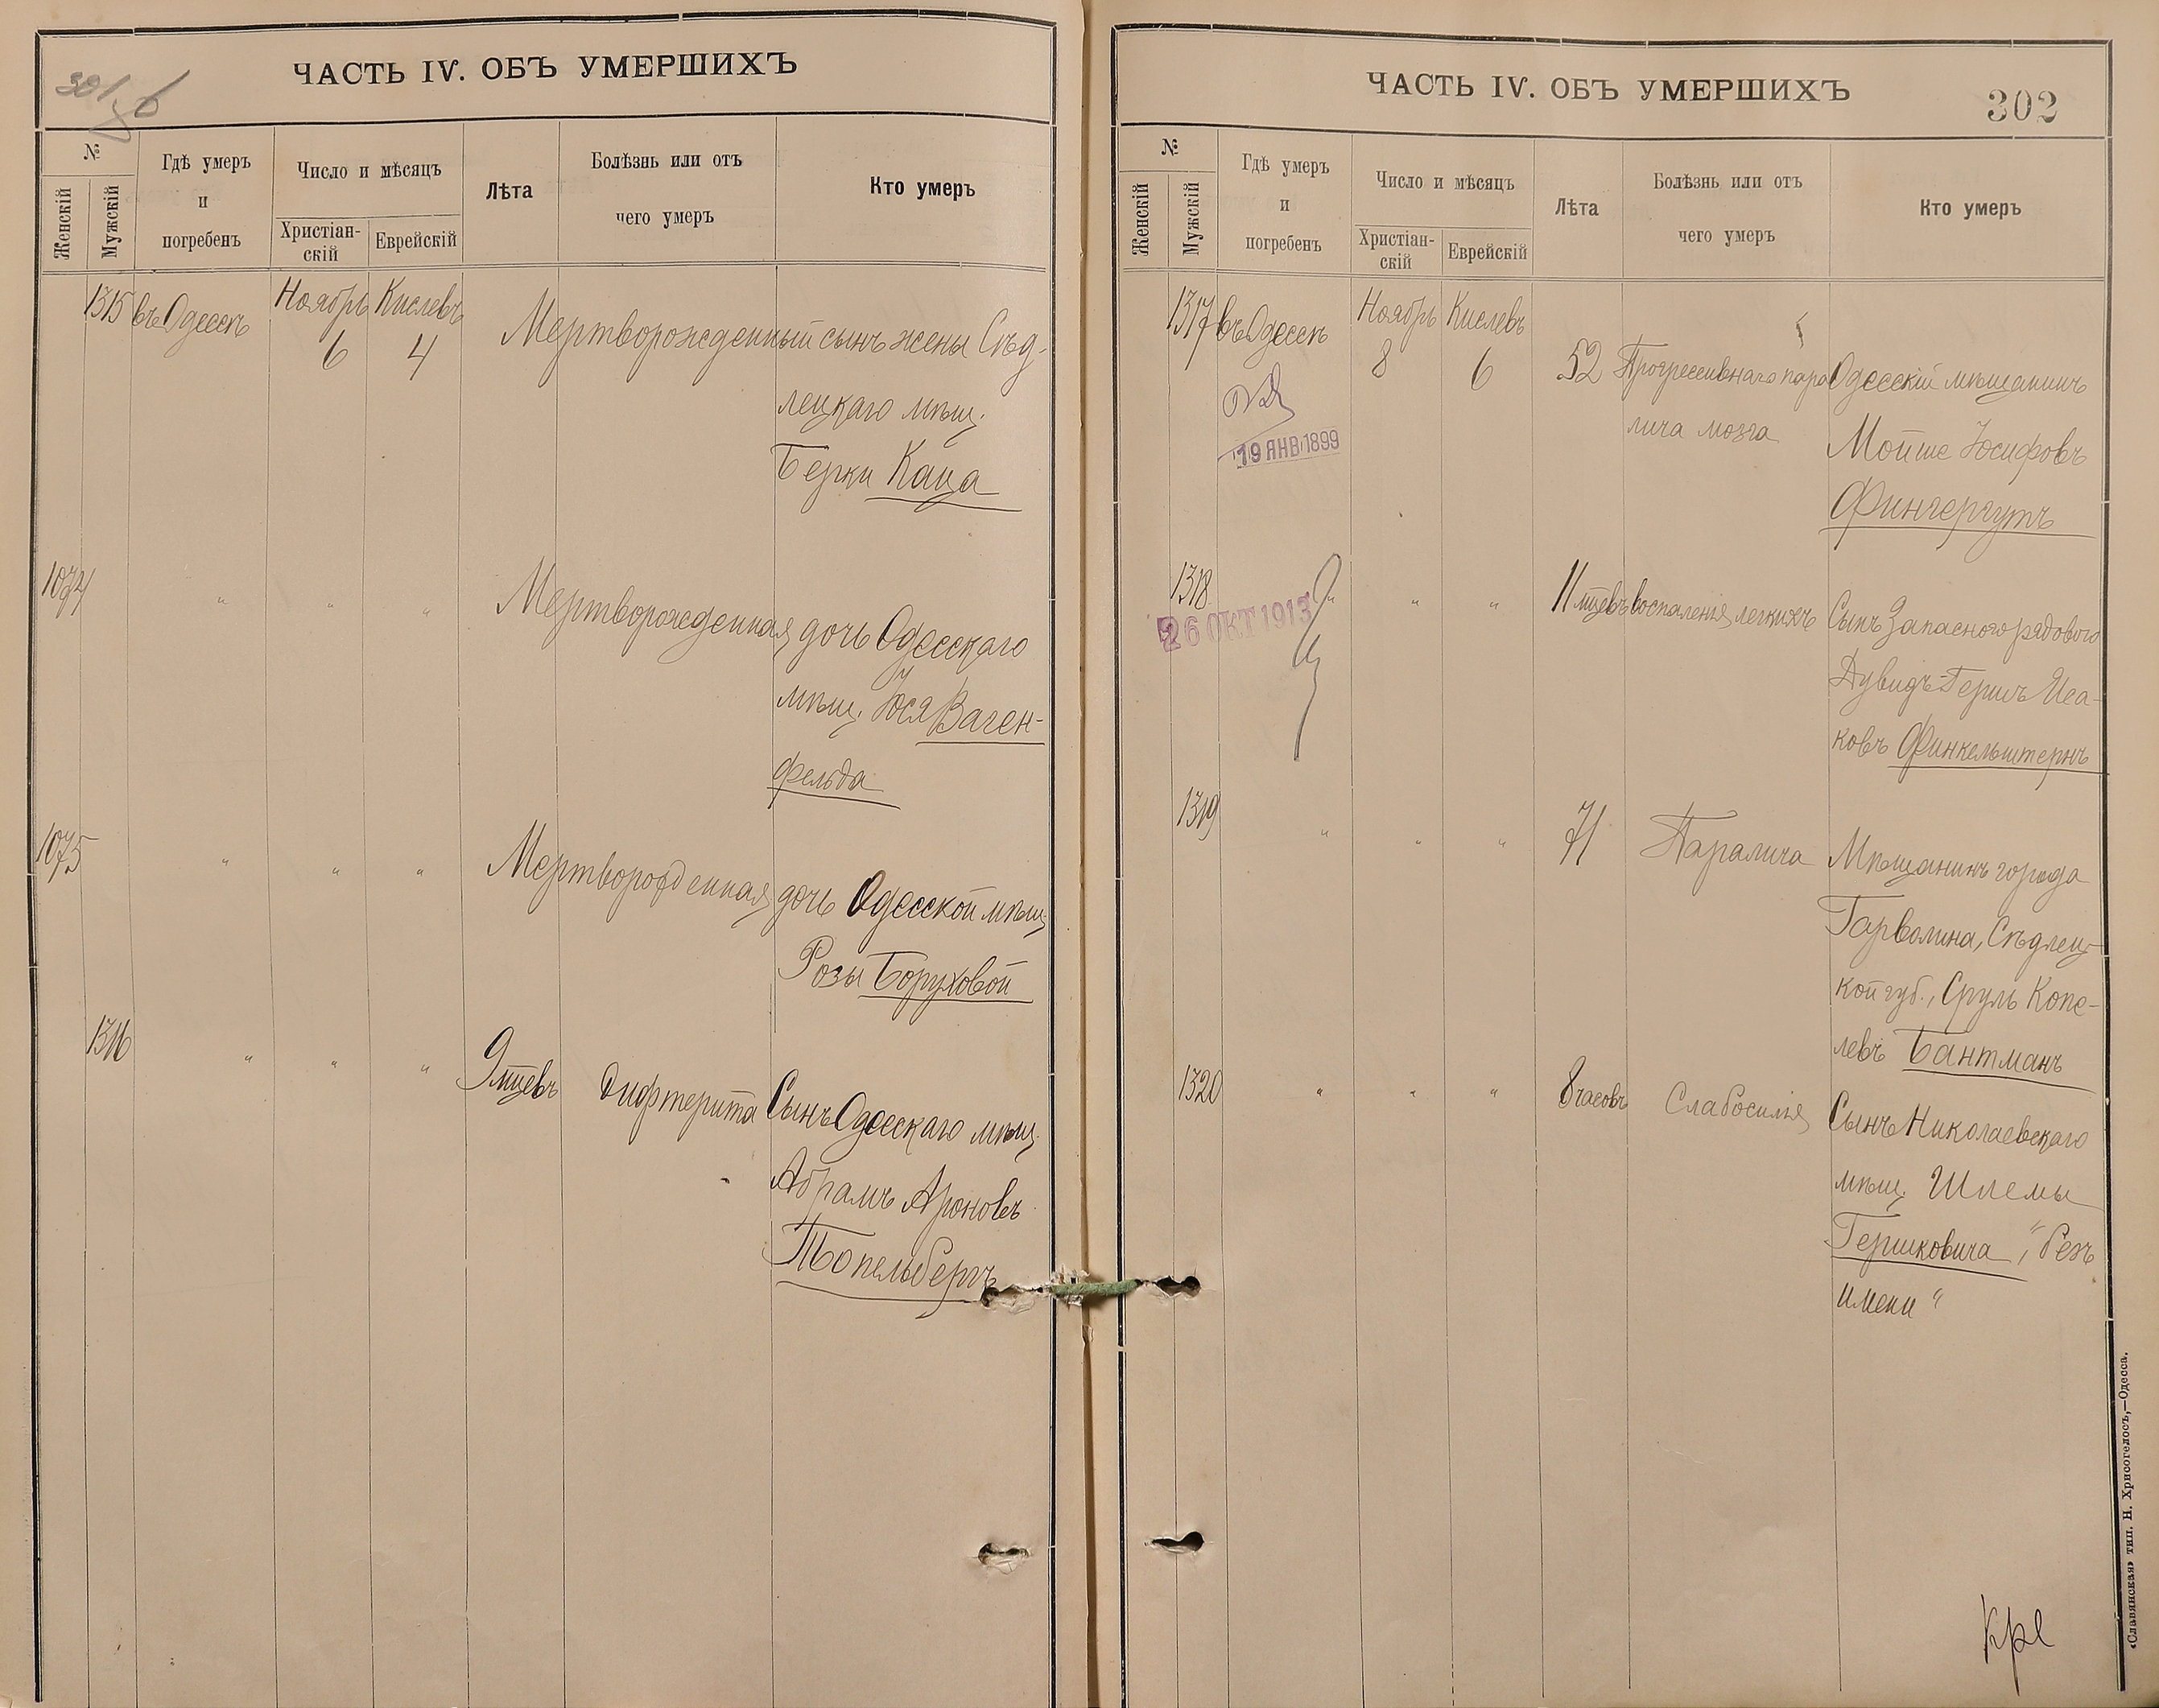 301 об
ЧАСТЬ IV. ОБЪ УМЕРШИХЪ
№
Женскій
Мужскій
Гдѣ умеръ
и
погребенъ
Число и мѣсяцъ
Христіан-
скій
Еврейскій
Лѣта
Болѣзнь или отъ
чего умеръ
Кто умеръ
1315 въ Одессѣ Ноябрь Кислевъ
6 4 Мертворожденный сынъ жены Сѣд-
лецкаго мѣщ.
Берки Каца
1074 " " " Мертворожденная дочь Одесскаго
мѣщ. Іося Ваген-
фельда
1075 " " " Мертворожденная дочь Одесской мѣщ.
Розы Боруховой
1316 " " " 9 мцевъ Дифтерита Сынъ Одесскаго мѣщ.
Абрамъ Ароновъ
Топельбергъ
ЧАСТЬ IV. ОБЪ УМЕРШИХЪ
302
№
Женскій
Мужскій
Гдѣ умеръ
и
погребенъ
Число и мѣсяцъ
Христіан-
скій
Еврейскій
Лѣта
Болѣзнь или отъ
чего умеръ
Кто умеръ
1317 въ Одессѣ Ноябрь Кислевъ
8 6 52 Прогрессивнаго пара Одесскій мѣщанинъ
лича мозга Мойше Іосифовъ
19 ЯНВ 1899
Фингергутъ
1318 " " " 11 мцевъ воспаленія легкихъ Сынъ Запасного рядового
26 ОКТ 1913
Дувидъ-Гершъ Иса-
ковъ Финкельштернъ
1319 " " " 71 Паралича Мѣщанинъ города
Гарволина, Сѣдлец-
кой губ., Сруль Копе-
левъ Бантманъ
1320 " " " 8 часовъ Слабосилія Сынъ Николаевскаго
мѣщ. Шлемы
Гершковича, "безъ
имени"
«Славянская» тип. Н. Хрисогелосъ,—Одесса.